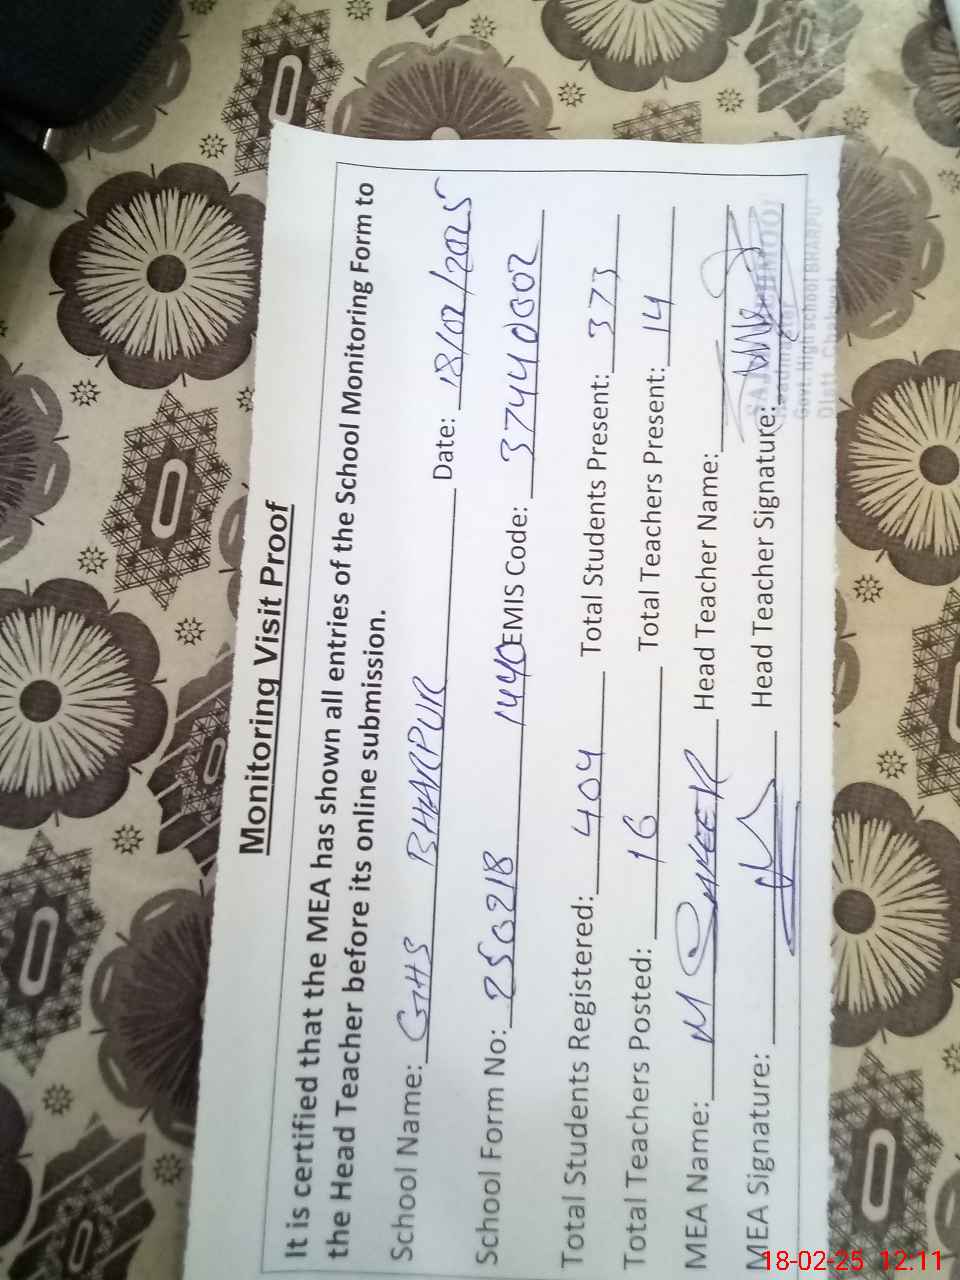 Monitoring Visit Proof
It is certified that the MEA has shown all entries of the School Monitoring Form to
the Head Teacher before its online submission.
School Name: GHS BHARPUR Date: 18/02/2025
School Form No: 250218 1440 EMIS Code: 37440302
Total Students Registered: 404 Total Students Present: 373
Total Teachers Posted: 16 Total Teachers Present: 14
MEA Name: M Head Teacher Name:
MEA Signature: Head Teacher Signature:
Headmaster
Govt. High school BHARPU
Distt. Chakwal
18-02-25 12:11